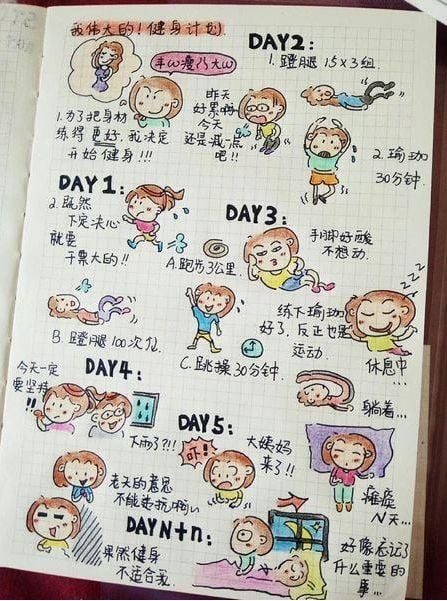 我伟大的！健身计划
1.为了把身材
练得更好,我决定
开始健身!!!
DAY1:
2.既然
下定决心
就要
干票大的!!
A.跑步3公里.
B.蹬腿100次/组
C.跳操30分钟.
DAY2:
昨天
好累啊
今天
还是减一点
吧!!
1.蹬腿15x3组.
2.瑜珈
30分钟.
DAY3:
手脚好酸
不想动.
练下瑜珈
好了,反正也是
运动.
zzz
休息中...
躺着...
DAY4:
今天一定
要坚持
!!
下雨了?!!
老天的意思
不能违抗啊
DAY5:
吓!
大姨妈
来了!!
瘫痪
N天...
DAYN+n:
果然健身
不适合我.
好像忘记了
什么重要的
事...